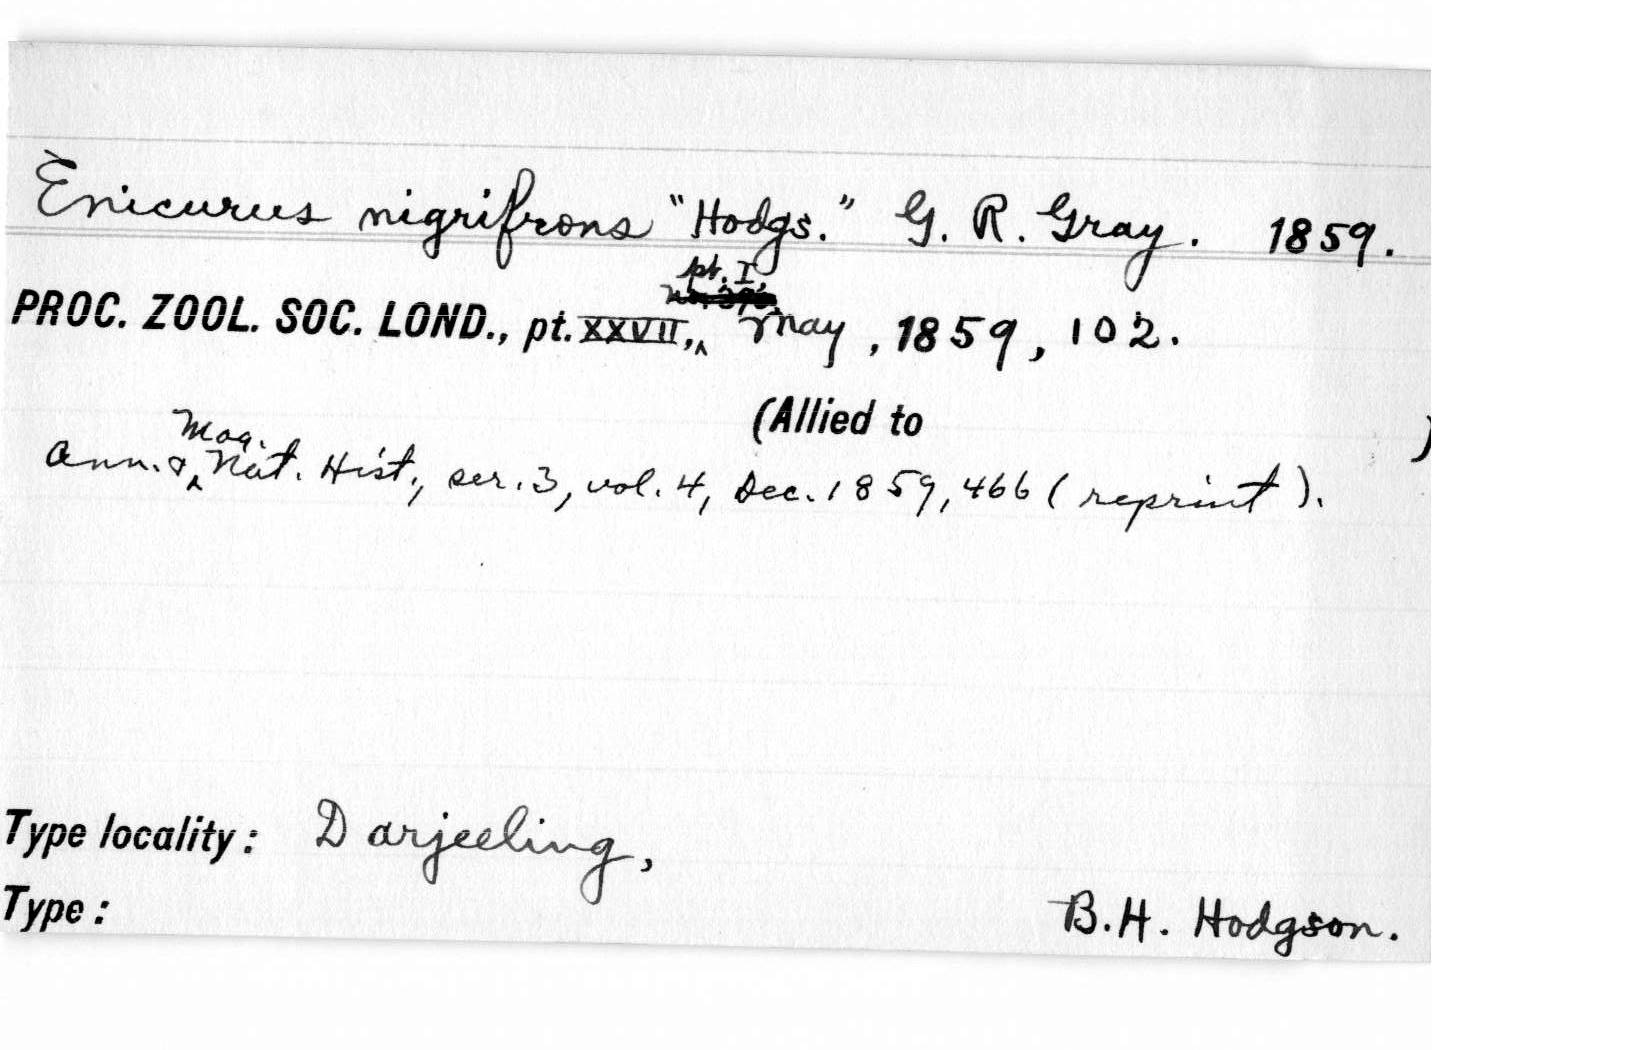 Enicurus nigrifrons "Hodgs." G. R. Gray. 1859.
pt. I,
PROC. ZOOL. SOC. LOND., pt. XXVII, ‸ May, 1859, 102.
(Allied to )
Mag.
Ann. & ‸ Nat. Hist., ser. 3, vol. 4, Dec. 1859, 466 (reprint).
Type locality: Darjeeling,
Type: B. H. Hodgson.